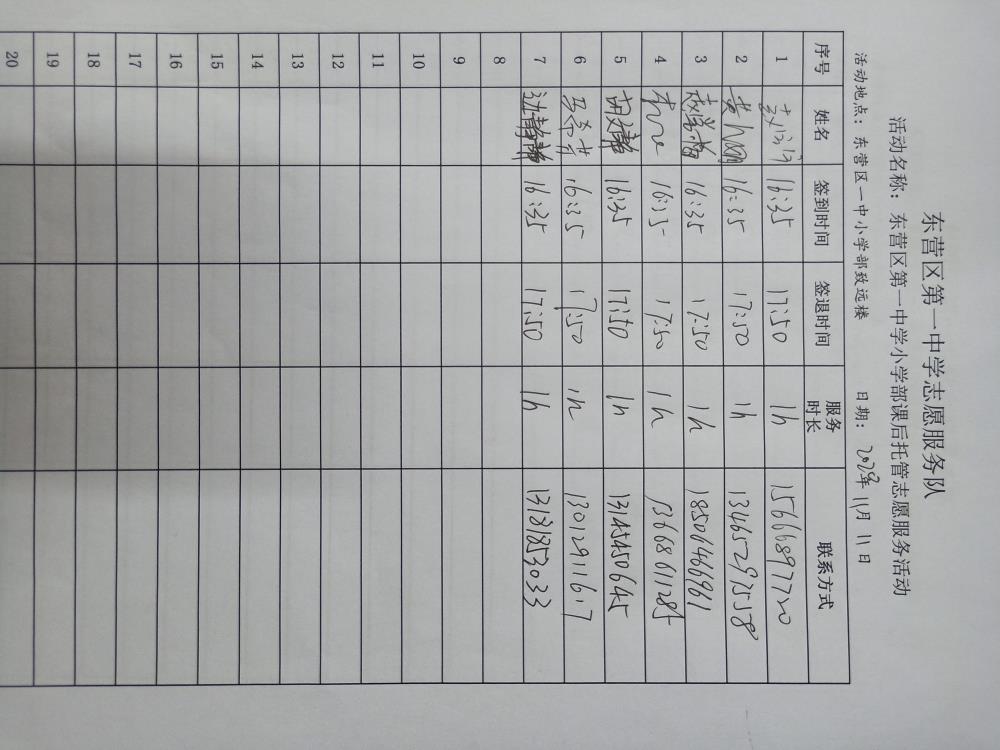 东营区第一中学志愿服务队
活动名称：东营区第一中学小学部课后托管志愿服务活动
活动地点：东营区一中小学部致远楼 日期：年 11月 11日
序号 姓名 签到时间 签退时间 服务时长 联系方式
1 16:35 17:50 1h 15666897720
2 16:35 17:50 1h 13465297558
3 16:35 17:50 1h 18506466961
4 16:35 17:50 1h 13668611285
5 胡静 16:35 17:50 1h 13145450645
6 马希 16:35 17:50 1h 13012911617
7 边静静 16:35 17:50 1h 13181853033
8
9
10
11
12
13
14
15
16
17
18
19
20